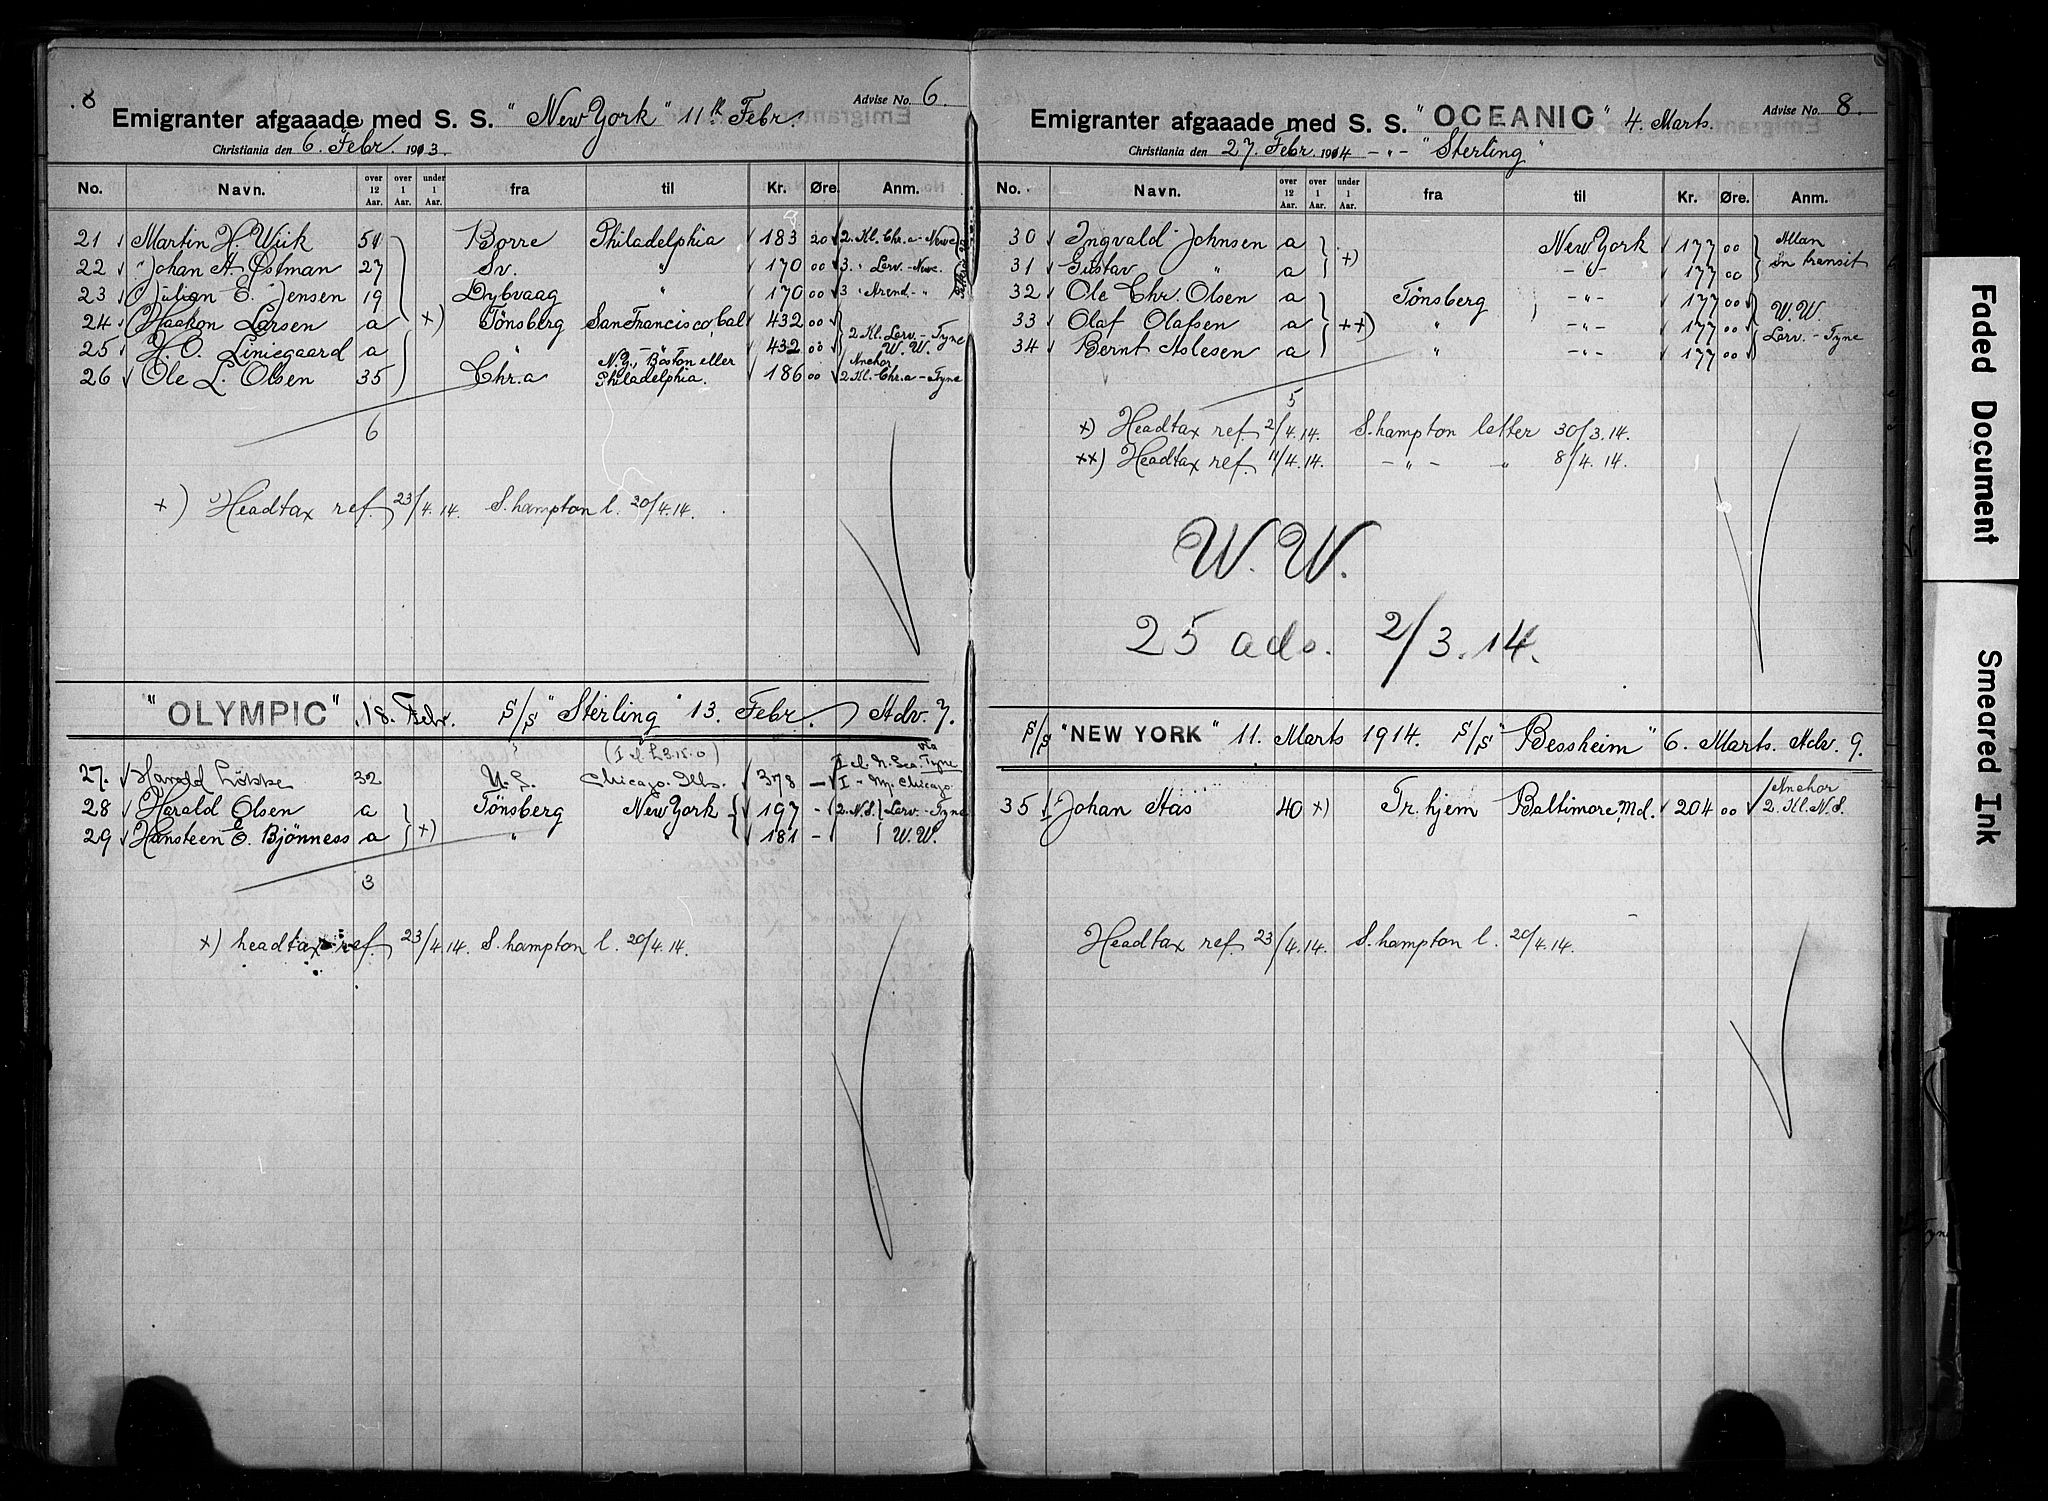 8
Advise No. 6.
Emigranter afgaaade med S. S. "New York" 11th Febr.
Christiania den 6. Febr. 1913.
No. Navn. over 12 Aar. over 1 Aar. under 1 Aar. fra til Kr. Øre. Anm.
21 Martin H. Wiik 51 Borre Philadelphia 183 20 2. Kl. Chr.a - Newc.
22 Johan A. Östman 27 Sv. " 170 00 3. " Larv. - Newc.
23 Julian E. Jensen 19 Dybvaag " 170 00 3 " Arend. - "
24 Haakon Larsen a x) Tönsberg San Francisco, Cal 432 00 2 Kl. Larv. - Tyne
25 H. O. Liniegaard a " — " — 432 00 W. W.
26 Ole L. Olsen 35 Chr.a N.Y., Boston eller Philadelphia. 186 00 Anchor 2 Kl. Chr.a - Tyne
6
x) Headtax ref. 23/4.14. S.hampton l. 20/4.14.
"OLYMPIC" 18. Febr. S/S "Sterling" 13. Febr. Adv. 7.
(I cl. £ 3.15.0) via
27. Harald Lökke 32 U.S. Chicago. Ills. 378 — I cl. N. Sea. Tyne I - Chicago
28 Harald Olsen a Tönsberg New York 197 - 2. N.S. Larv. - Tyne
29 Hansteen E. Bjönness a x) " " 181 - W. W.
3
x) headtax ref. 23/4.14. S.hampton l. 20/4.14.
Advise No. 8.
Emigranter afgaaade med S. S. "OCEANIC" 4. Marts.
Christiania den 27. Febr. 1914 - " - "Sterling"
No. Navn. over 12 Aar. over 1 Aar. under 1 Aar. fra til Kr. Øre. Anm.
30 Ingvald Johnsen a x) New York 177 00 Allan
31 Gustav " a - " - 177 00 In transit
32 Ole Chr. Olsen a Tönsberg - " - 177 00 W. W.
33 Olaf Olafsen a xx) " - " - 177 00 Larv. - Tyne
34 Bernt Aslesen a " - " - 177 00
5
x) Headtax ref. 2/4.14. S.hampton letter 30/3.14.
xx) Headtax ref. 11/4.14. - " - " 8/4.14.
W. W.
25 ads. 2/3.14.
S/S "NEW YORK" 11. Marts 1914. S/S "Bessheim" 6. Marts. Adv. 9.
35 Johan Aas 40 x) Tr.hjem Baltimore, Md. 204 00 Anchor 2. Kl. N.S.
Headtax ref. 23/4.14. S.hampton l. 20/4.14.
Faded Document
Smeared Ink